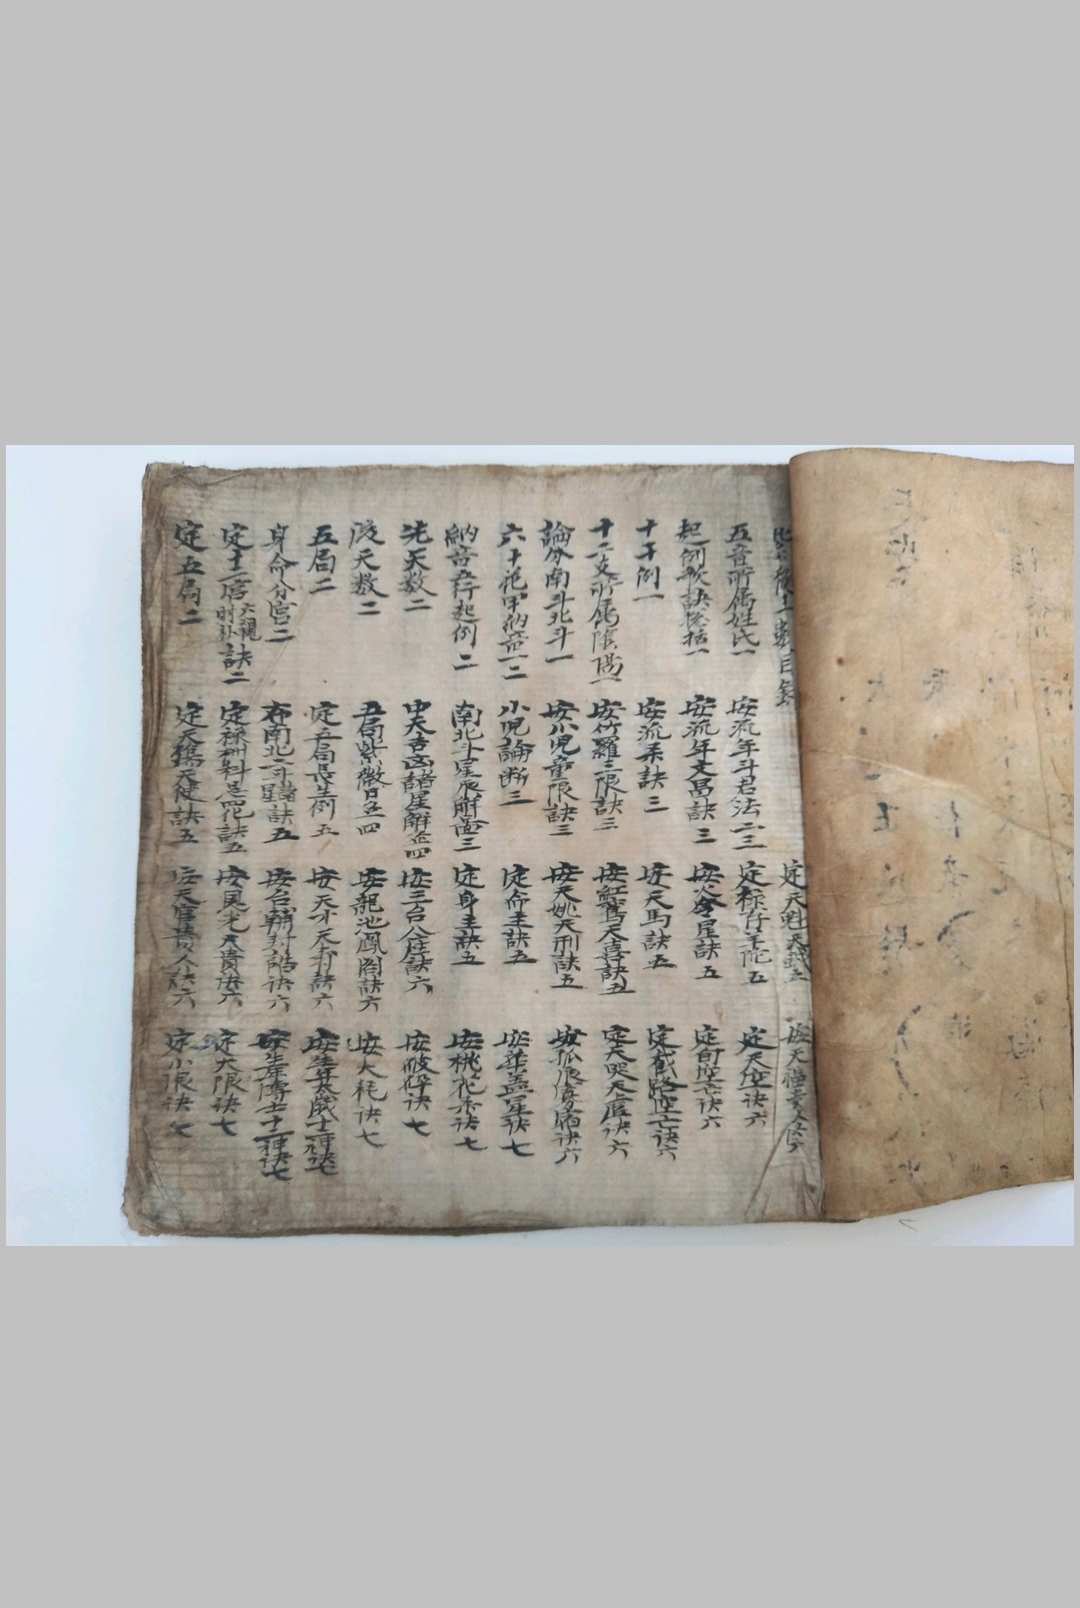 紫微斗數目錄
五音所属姓氏一
起例歌訣總括一
十干例一
十二支所属陰陽一
論分南斗北斗一
六十花甲納音一二
納音五行起例二
先天数二
後天数二
五局二
身命分宮二
定十二宮六親時卦訣二
定五局二
安流年斗君法二三
安流年文昌訣三
安流年訣三
安竹羅三限訣三
安小児童限訣三
小児論断三
南北斗星辰解面三
中天吉凶諸星解面四
五局紫微日五四
定五局長生例五
布南北二斗諸星訣五
定禄权科忌四化訣五
定天馬天徤訣五
定天魁天鉞五
定禄存羊陀五
安火令星訣五
安天馬訣五
安紅鸞天喜訣五
安天姚天刑訣五
定命主訣五
定身主訣五
安三台八座訣六
安龍池鳳閣訣六
安天才天壽訣六
安台輔封誥訣六
安恩光天貴訣六
安天官貴人訣六
安天福貴人訣六
定天空诀六
定旬空亡诀六
定截路空亡诀六
定天哭天虛诀六
安孤辰寡宿诀六
安華盖星诀七
安桃花煞诀七
安破碎诀七
安大耗诀七
安生年太歲十二神诀七
安生年博士十二神诀七
定大限诀七
定小限诀七